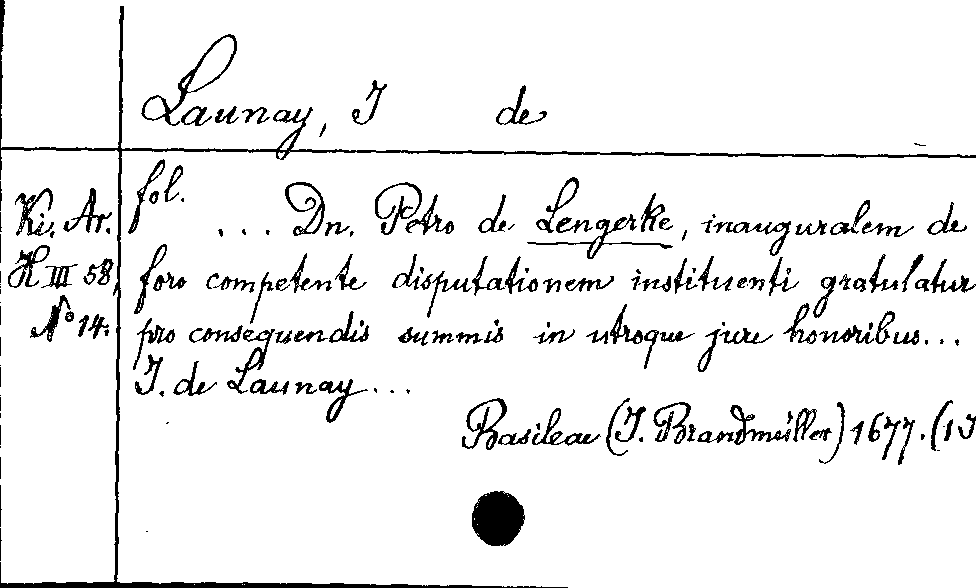 Launay, J de
fol.
Ki. Ar.
H III 58,
No 14.
... Dn. Petro de Lengerke, inauguralem de
foro competente disputationem instituenti gratulatur
pro consequendis summis in utroque jure honoribus...
J. de Launay...
Basileae (J. Brandmüller) 1677. (1J